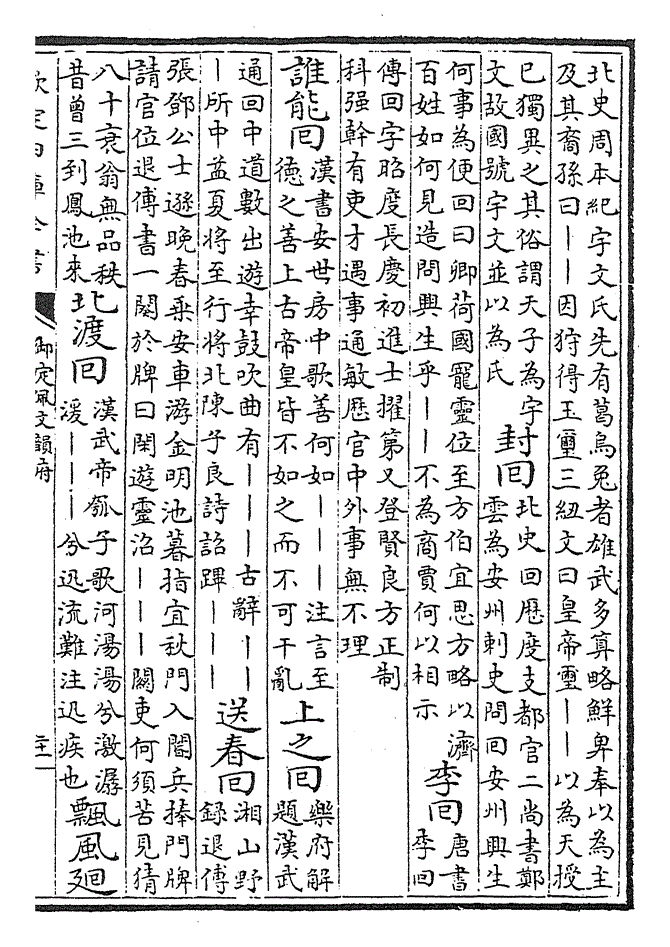 北史周本紀宇文氏先有葛烏兔者雄武多算略鮮卑奉以為主
及其裔孫曰丨丨因狩得玉璽三紐文曰皇帝璽丨丨以為天授
已獨異之其俗謂天子為宇
文故國號宇文並以為氏
封回
北史回歷度支都官二尚書鄭
雲為安州刺史問回安州興生
何事為便回曰卿荷國寵靈位至方伯宜思方略以濟
百姓如何見造問興生乎丨丨不為商賈何以相示
李回
唐書
李回
傳回字昭度長慶初進士擢第又登賢良方正制
科强幹有吏才遇事通敏歷官中外事無不理
誰能回
漢書安世房中歌善何如丨丨丨注言至
德之善上古帝皇皆不如之而不可干亂
上之回
樂府解
題漢武
通回中道數出遊幸鼓吹曲有丨丨丨古辭丨丨
丨所中益夏將至行將北陳子良詩詔蹕丨丨丨
送春回
湘山野
録退傅
張鄧公士遜晚春乘安車游金明池暮指宜秋門入闔兵捧門牌
請官位退傅書一闋於牌曰閑遊靈沼丨丨丨闗吏何須苦見猜
八十衰翁無品秩
昔曾三到鳳池來
北渡回
漢武帝瓠子歌河湯湯兮激潺
湲丨丨丨兮迅流難注迅疾也
飄風廻
欽定四庫全書
御定佩文韻府